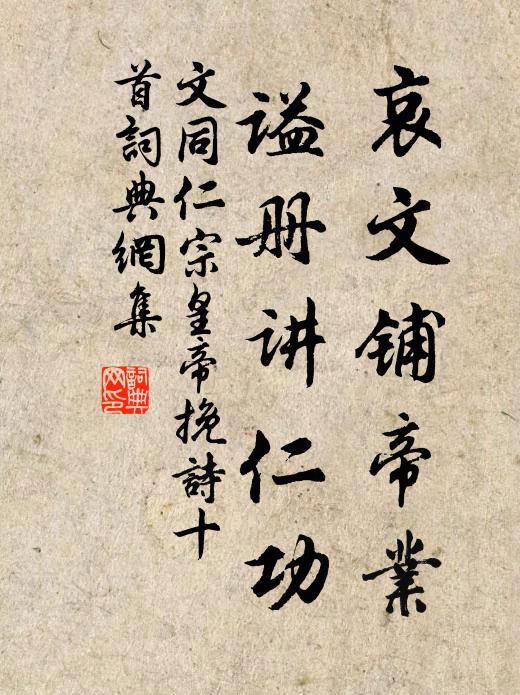 哀文铺帝業
谥册讲仁功
文同仁宗皇帝挽詩十
首詞典網集
詞典网印